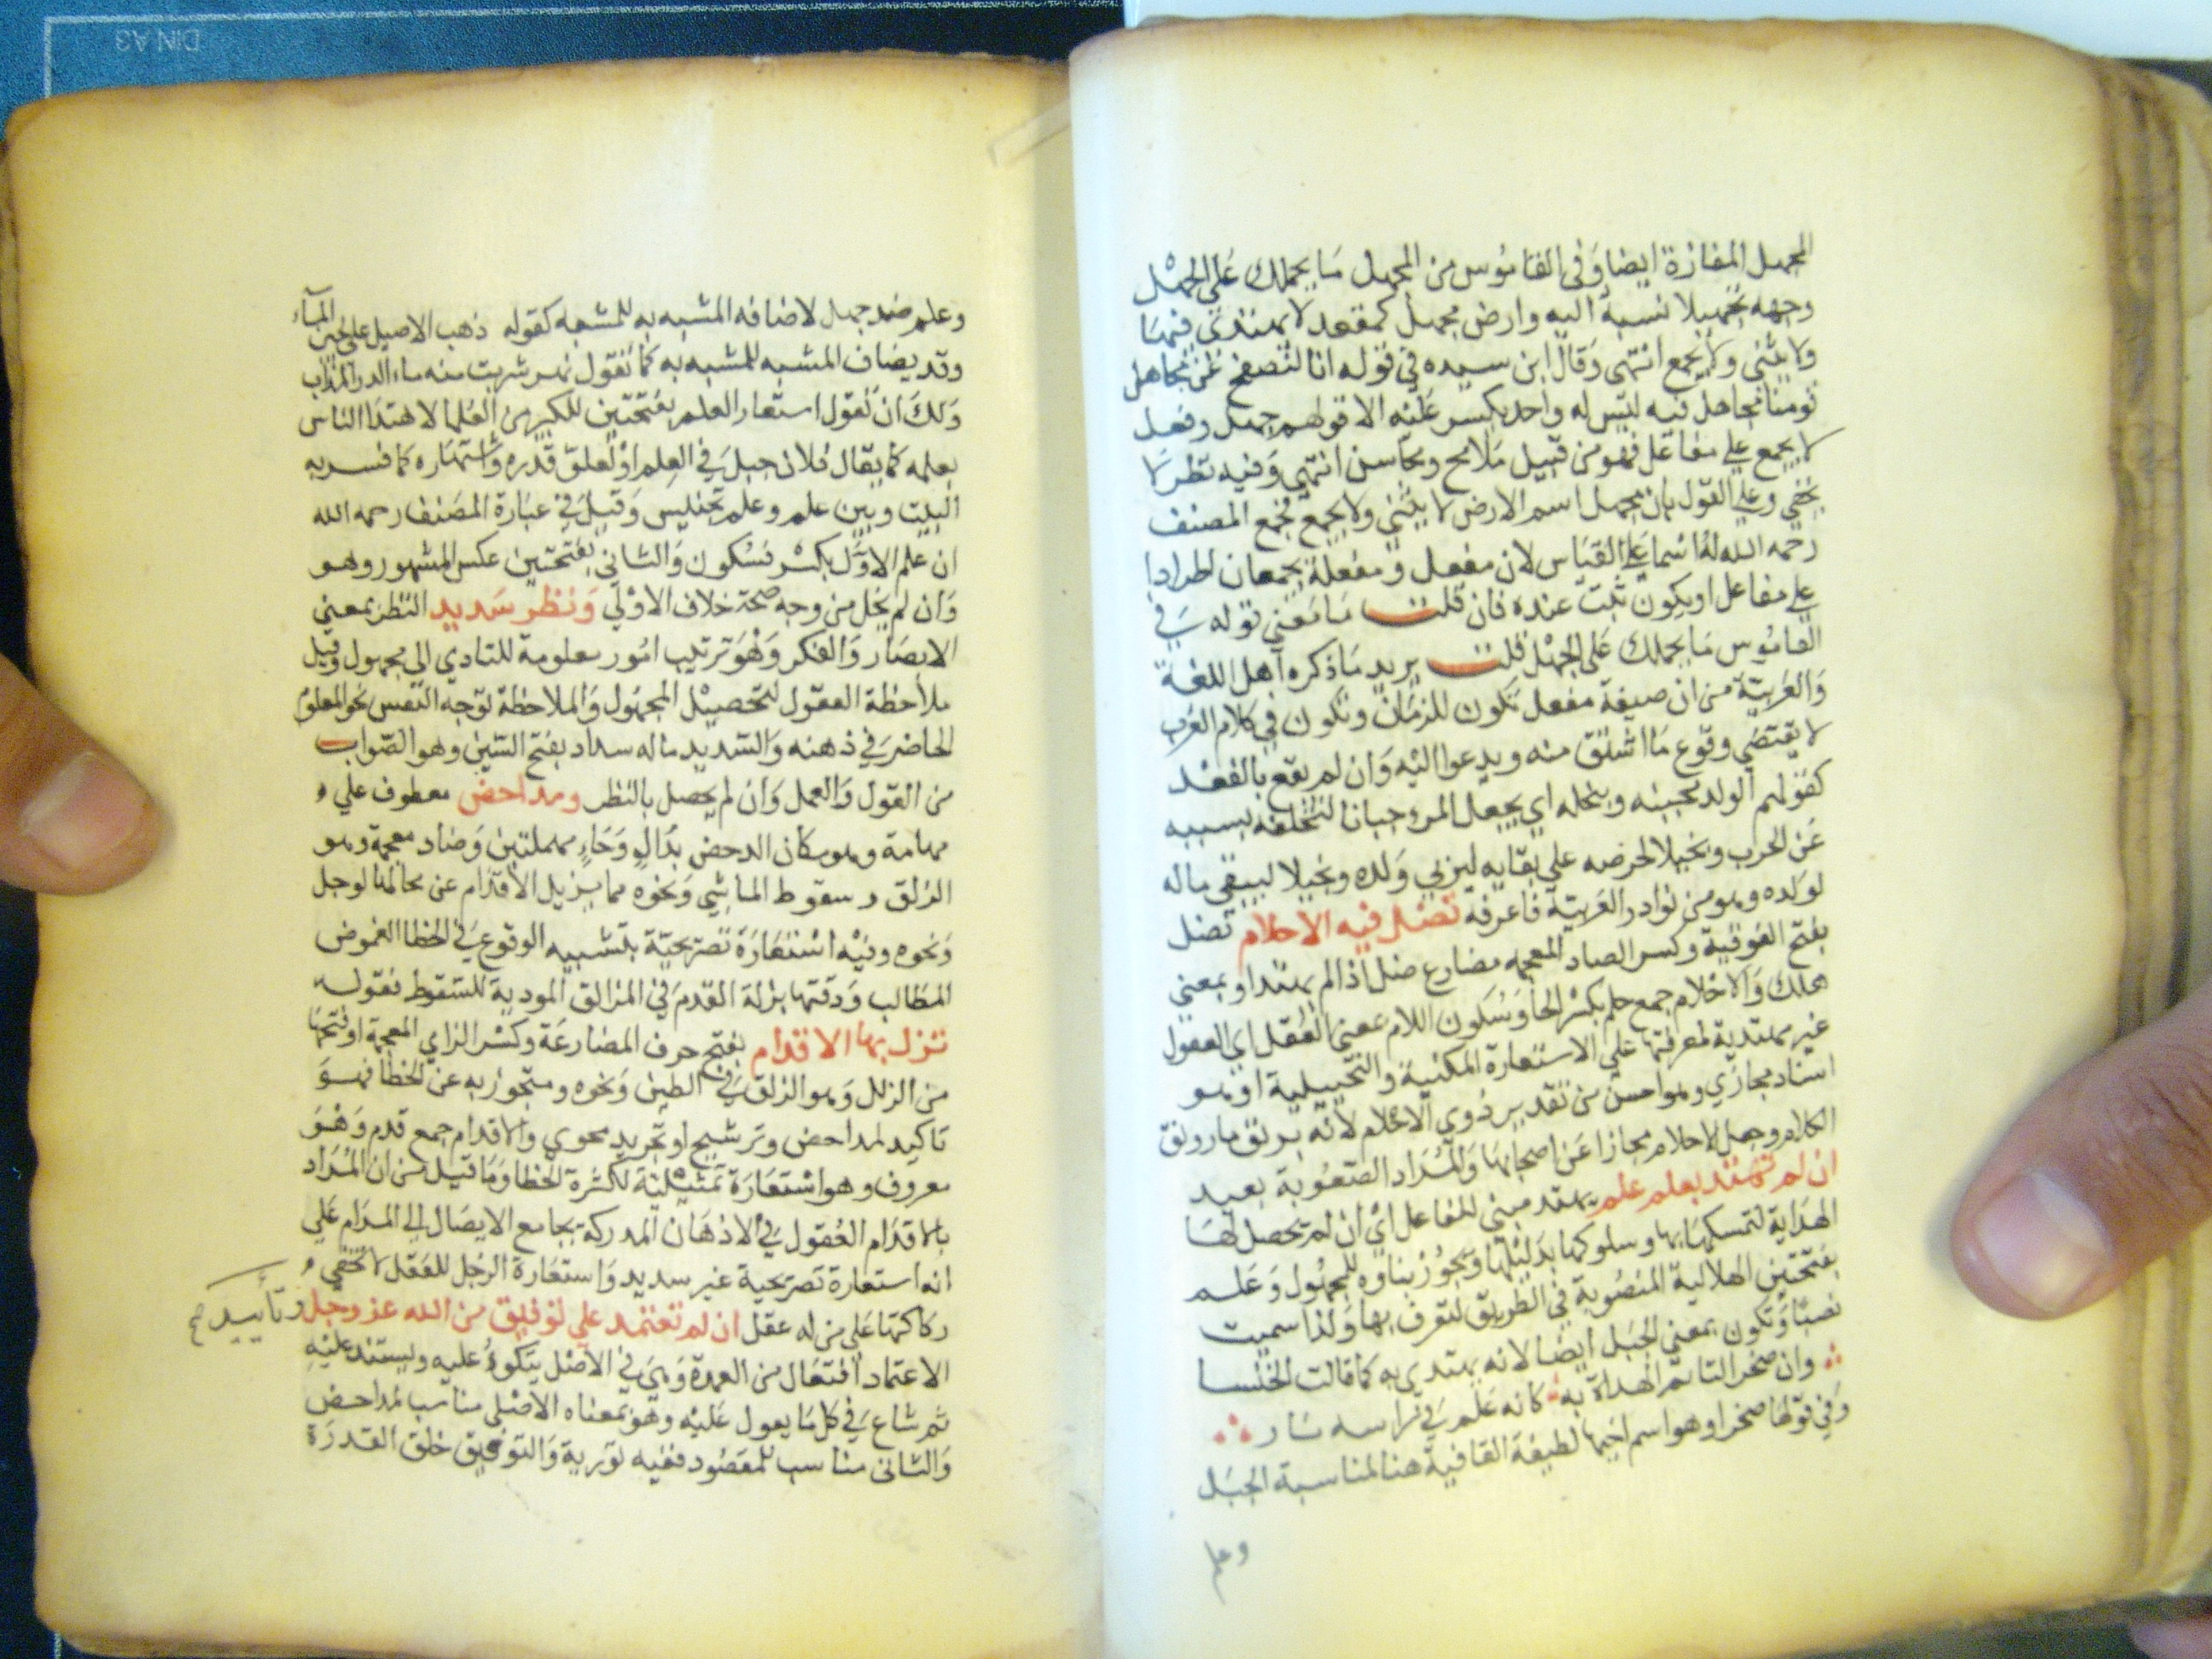 المجهل المفازة ايضا وفى القاموس من المجهل ما يحملك على الجهل
وجهله تجهيلا نسبه اليه وارض مجهل كمقعد لا يهتدي فيها
ولا يثنى ولا يجمع انتهى وقال ابن سيده في قوله انا لنصفح عن مجاهل
قومنا مجاهل فيه ليس له واحد يكسر عليه الا قولهم جهل وفعل
لا يجمع علي مفاعل فهو من قبيل ملامح ومحاسن انتهي وفيه نظر لا
يخفي وعلي القول بان مجهل اسم الارض لا يثني ولا يجمع فجمع المصنف
رحمه الله له اما علي القياس لان مفعل ومفعلة يجمعان اطرادا
علي مفاعل او يكون ثبت عنده فان قلت ما معني قوله في
القاموس ما يحملك على الجهل قلت يريد ما ذكره اهل اللغة
والعربية من ان صيغة مفعل تكون للزمان وتكون في كلام العرب
لا يقتضي وقوع ما اشتق منه ويدعوا اليه وان لم يقع بالفعل
كقولهم الولد مجبنه ومبخله اي يجعل المرء جبانا لتخلفه بسببه
عن الحرب وبخيلا لحرصه على بقايه ليربي ولده وبخيلا ليبقي ماله
لولده وهو من نوادر العربية فاعرفه تضل فيه الاحلام تضل
بفتح الفوقية وكسر الضاد المعجمه مضارع ضل اذا لم يهتد او بمعني
هلك والاحلام جمع حلم بكسر الحا وسكون اللام بمعني العقل اي العقول
غير مهتدية لمعرفتها علي الاستعارة المكنية والتخييلية او هو
اسناد مجازي وهو احسن من تقدير ذوي الاحلام لانه يرنق ما رونق
الكلام وجعل الاحلام مجازا عن اصحابها والمراد الصعوبة بعيد
ان لم تهتد بعلم علم يهتد مبني للفاعل اي ان لم تحصل لها
الهداية لتمسكها بها وسلوكها بدليلها ويجوز بناوه للمجهول وعلم
بفتحتين الهلالية المنصوبة في الطريق لتعرف بها ولذا سميت
نصبا وتكون بمعني الجبل ايضا لانه يهتدي به كما قالت الخنسا
وان صخرا لتاتم الهداة به كانه علم في راسه نار
وفي قولها صخرا وهو اسم اخيها لطيفة القافية هنا لمناسبة الجبل
وعلم
وعلم ضد جهل لاضافه المشبه به للمشبه كقوله ذهب الاصيل على لجين الماء
وقد يضاف المشبه للمشبه به كما تقول نهر شربت منه ماء الدر المذاب
ولك ان تقول استعار العلم بفتحتين للكبير من العلما لاهتدا الناس
بعلمه كما يقال فلان جبل في العلم او لعلو قدره واشتهاره كما فسر به
البيت وبين علم وعلم تجنيس وقيل في عبارة المصنف رحمه الله
ان علم الاول بكسر فسكون والثاني بفتحتين عكس المشهور وهو
وان لم يخل من وجه صحة خلاف الاولي ونظر سديد النظر بمعني
الابصار والفكر وهو ترتيب امور معلومة للتادي الى مجهول وقيل
ملاحظة المعقول لتحصيل المجهول والملاحظة توجه النفس نحو المعلوم
الحاضر في ذهنه والسديد ماله سداد بفتح السين وهو الصواب
من القول والعمل وان لم يحصل بالنظر ومداحض معطوف علي
مهامة وهو مكان الدحض بدال وحاء مهملتين وضاد معجمة وهو
الزلق وسقوط الماشي ونحوه مما يزيل الاقدام عن محالها لوجل
ونحوه وفيه استعارة تصريحية بتشبيه الوقوع في الخطا لغموض
المطالب ودقتها بزلة القدم في المزالق المودية للسقوط فقوله
تزل بها الاقدام بفتح حرف المضارعة وكسر الزاي المعجمة او فتحها
من الزلل وهو الزلق في الطين ونحوه ومتجوز به عن الخطا فهو
تاكيد لمداحض وترشيح او تجريد معوي والاقدام جمع قدم وهو
معروف وهو استعارة تمثيلية لكثرة الخطا وما قيل من ان المراد
بالاقدام العقول في الاذهان المدركة بجامع الايصال الى المرام علي
انه استعارة تصريحية غير سديد واستعارة الرجل للعقل لا تخفي
ركاكتها على من له عقل ان لم تعتمد علي توفيق من الله عز وجل وتأييد صح
الاعتماد افتعال من العمدة وهي في الاصل يتكوء عليه ويستند عليه
ثم شاع في كل ما يعول عليه وهو بمعناه الاصلى مناسب لمداحض
والثانى مناسب للمقصود ففيه تورية والتوفيق خلق القدرة
DIN A3